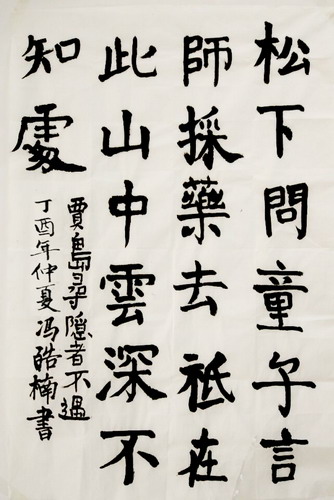 松下問童子言
師採藥去祇在
此山中雲深不
知處
賈島尋隱者不遇
丁酉年仲夏冯皓楠書